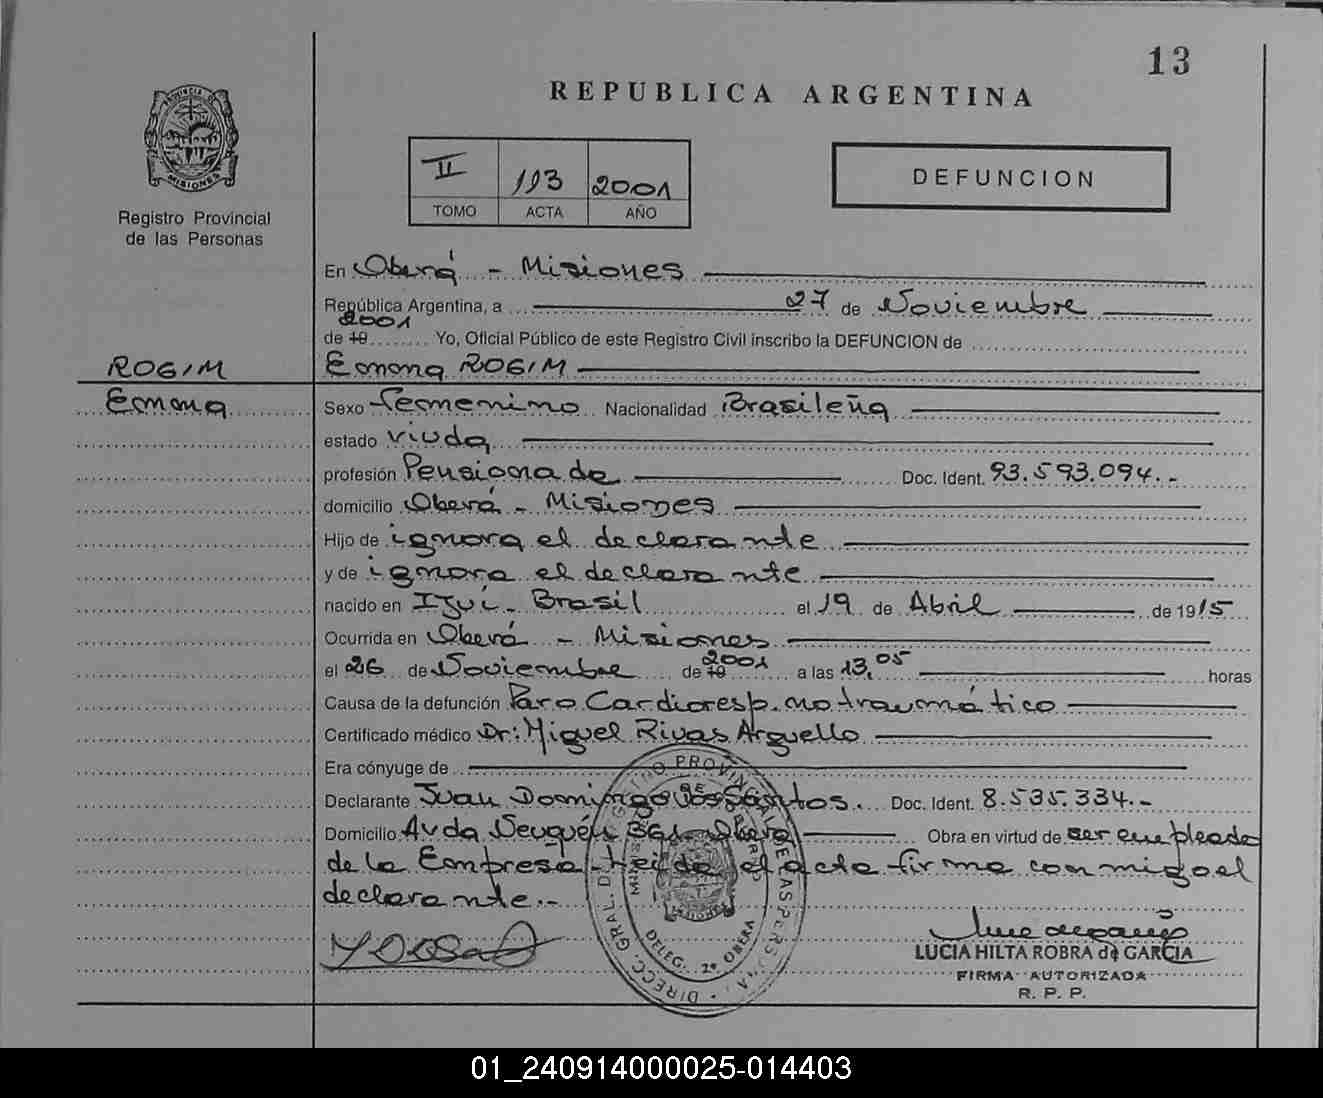 13
REPUBLICA ARGENTINA
PROVINCIA DE
MISIONES
Registro Provincial
de las Personas
II 113 2001
TOMO ACTA AÑO
DEFUNCION
En Oberá - Misiones
República Argentina, a 27 de Noviembre
2001
de 19 Yo, Oficial Público de este Registro Civil inscribo la DEFUNCION de
ROGIM Emma ROGIM
Emma Sexo Femenino Nacionalidad Brasileña
estado viuda
profesión Pensionada Doc. Ident. 93.593.094.-
domicilio Oberá - Misiones
Hijo de ignora el declarante
y de ignora el declarante
nacido en Ijuí - Brasil el 19 de Abril de 1915
Ocurrida en Oberá - Misiones
el 26 de Noviembre de 19 2001 a las 13,05 horas
Causa de la defunción Paro Cardioresp. no traumático
Certificado médico Dr: Miguel Rivas Arguello
Era cónyuge de
Declarante Juan Domingo Dos Santos. Doc. Ident. 8.535.334.-
Domicilio Avda Neuquén Oberá Obra en virtud de ser empleado
de la Empresa - Leída el acta firma conmigo el
declarante.-
DIRECC. GRAL. DEL REGISTRO PROVINCIAL DE LAS PERSONAS
DELEG. 2ª OBERA
LUCIA HILTA ROBRA de GARCIA
FIRMA AUTORIZADA
R. P. P.
01_240914000025-014403